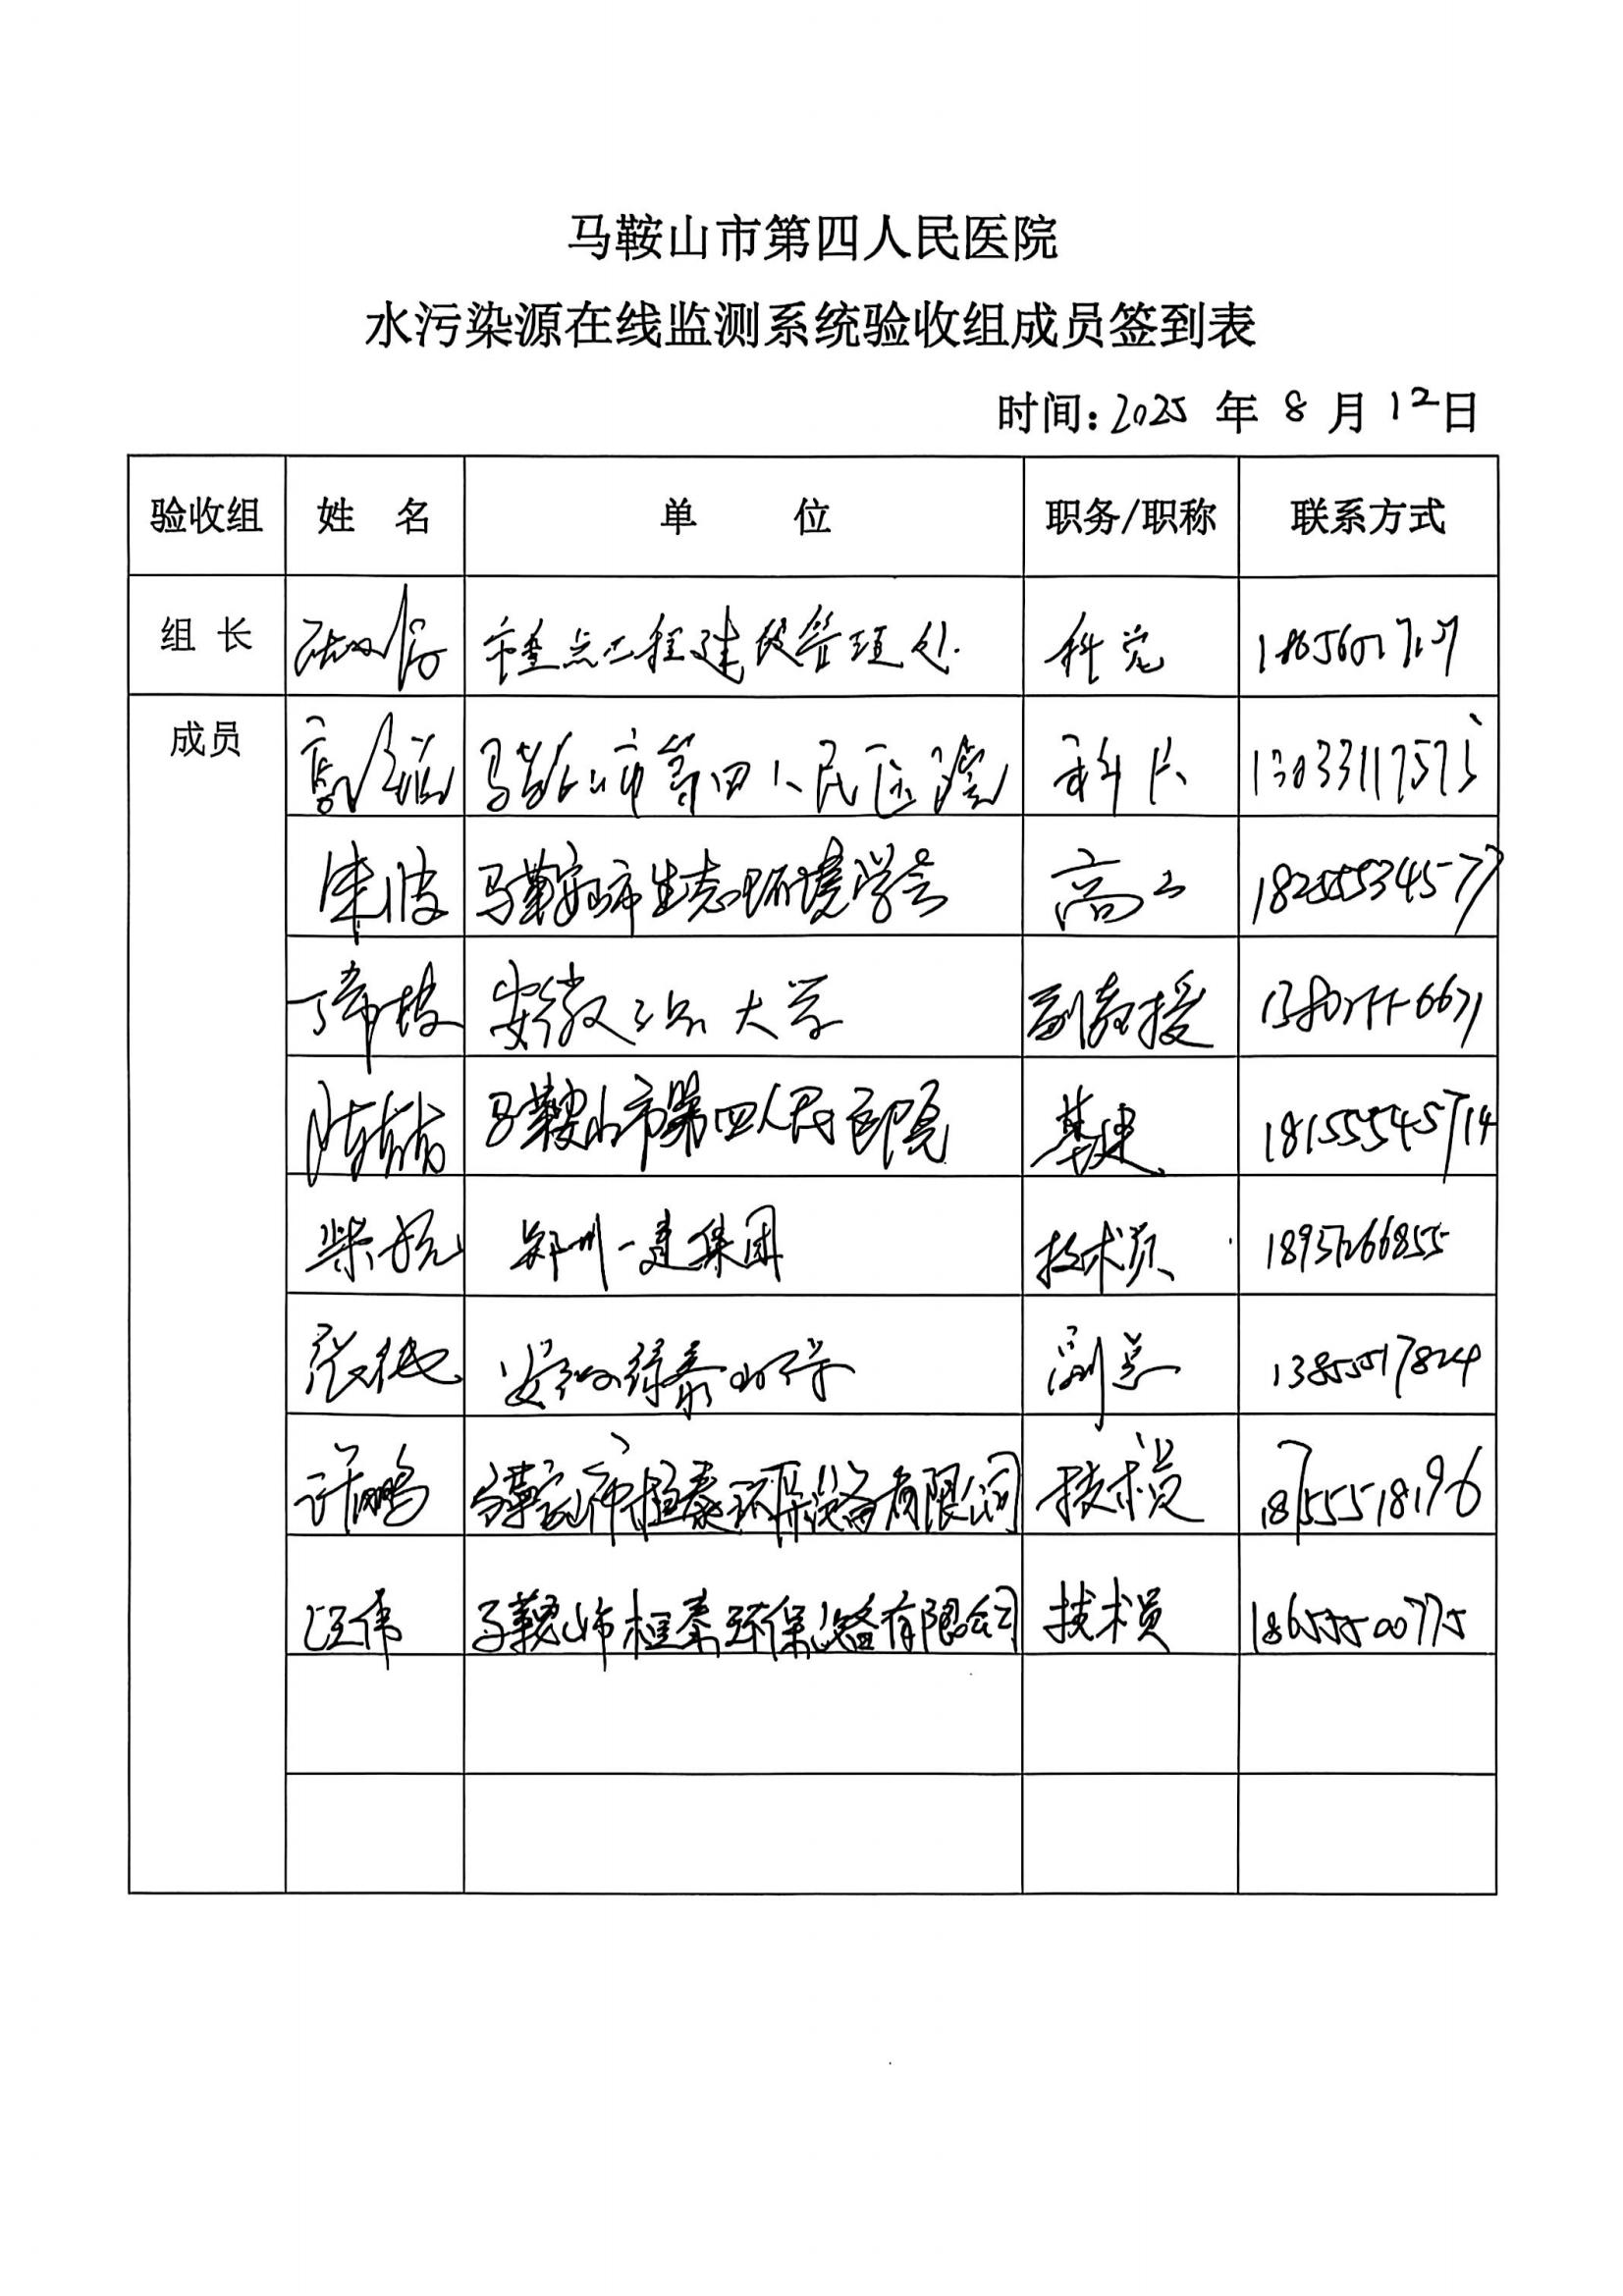 马鞍山市第四人民医院
水污染源在线监测系统验收组成员签到表
时间：2025 年 8 月 12日
验收组 姓 名 单 位 职务/职称 联系方式
组 长 市重点工程建设管理处
成员 马鞍山市第四人民医院 科长 13033117575
朱波 马鞍山市生态环境学会 高工 18255534577
丁希楼 安徽工业大学 副教授
马鞍山市第四人民医院 基建 18155545714
柴 郑州一建集团 技术员 18957266855
张 副总 13855517824
许鹏 马鞍山市桓泰环保设备有限公司 技术员 18755518196
汪伟 马鞍山市桓泰环保设备有限公司 技术员 18655500775